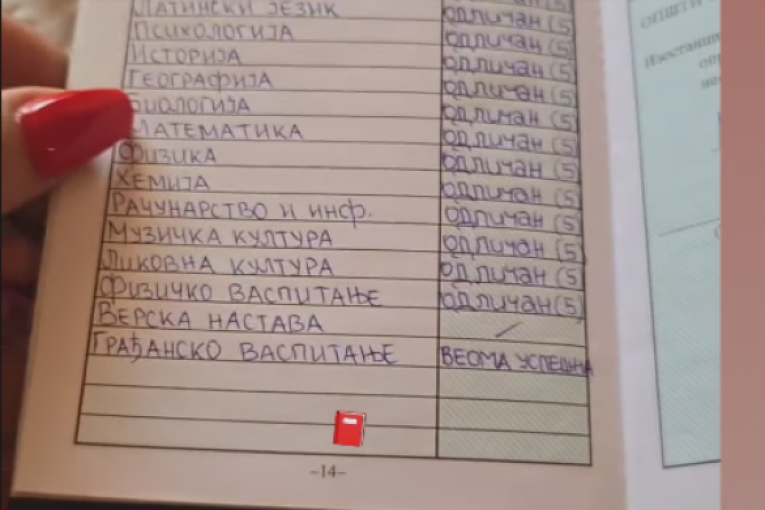 ЛАТИНСКИ ЈЕЗИК одличан (5)
ПСИХОЛОГИЈА одличан (5)
ИСТОРИЈА одличан (5)
ГЕОГРАФИЈА одличан (5)
БИОЛОГИЈА одличан (5)
МАТЕМАТИКА одличан (5)
ФИЗИКА одличан (5)
ХЕМИЈА одличан (5)
РАЧУНАРСТВО И ИНФ. одличан (5)
МУЗИЧКА КУЛТУРА одличан (5)
ЛИКОВНА КУЛТУРА одличан (5)
ФИЗИЧКО ВАСПИТАЊЕ одличан (5)
ВЕРСКА НАСТАВА /
ГРАЂАНСКО ВАСПИТАЊЕ ВЕОМА УСПЕШНА
-14-
ОПШТИ